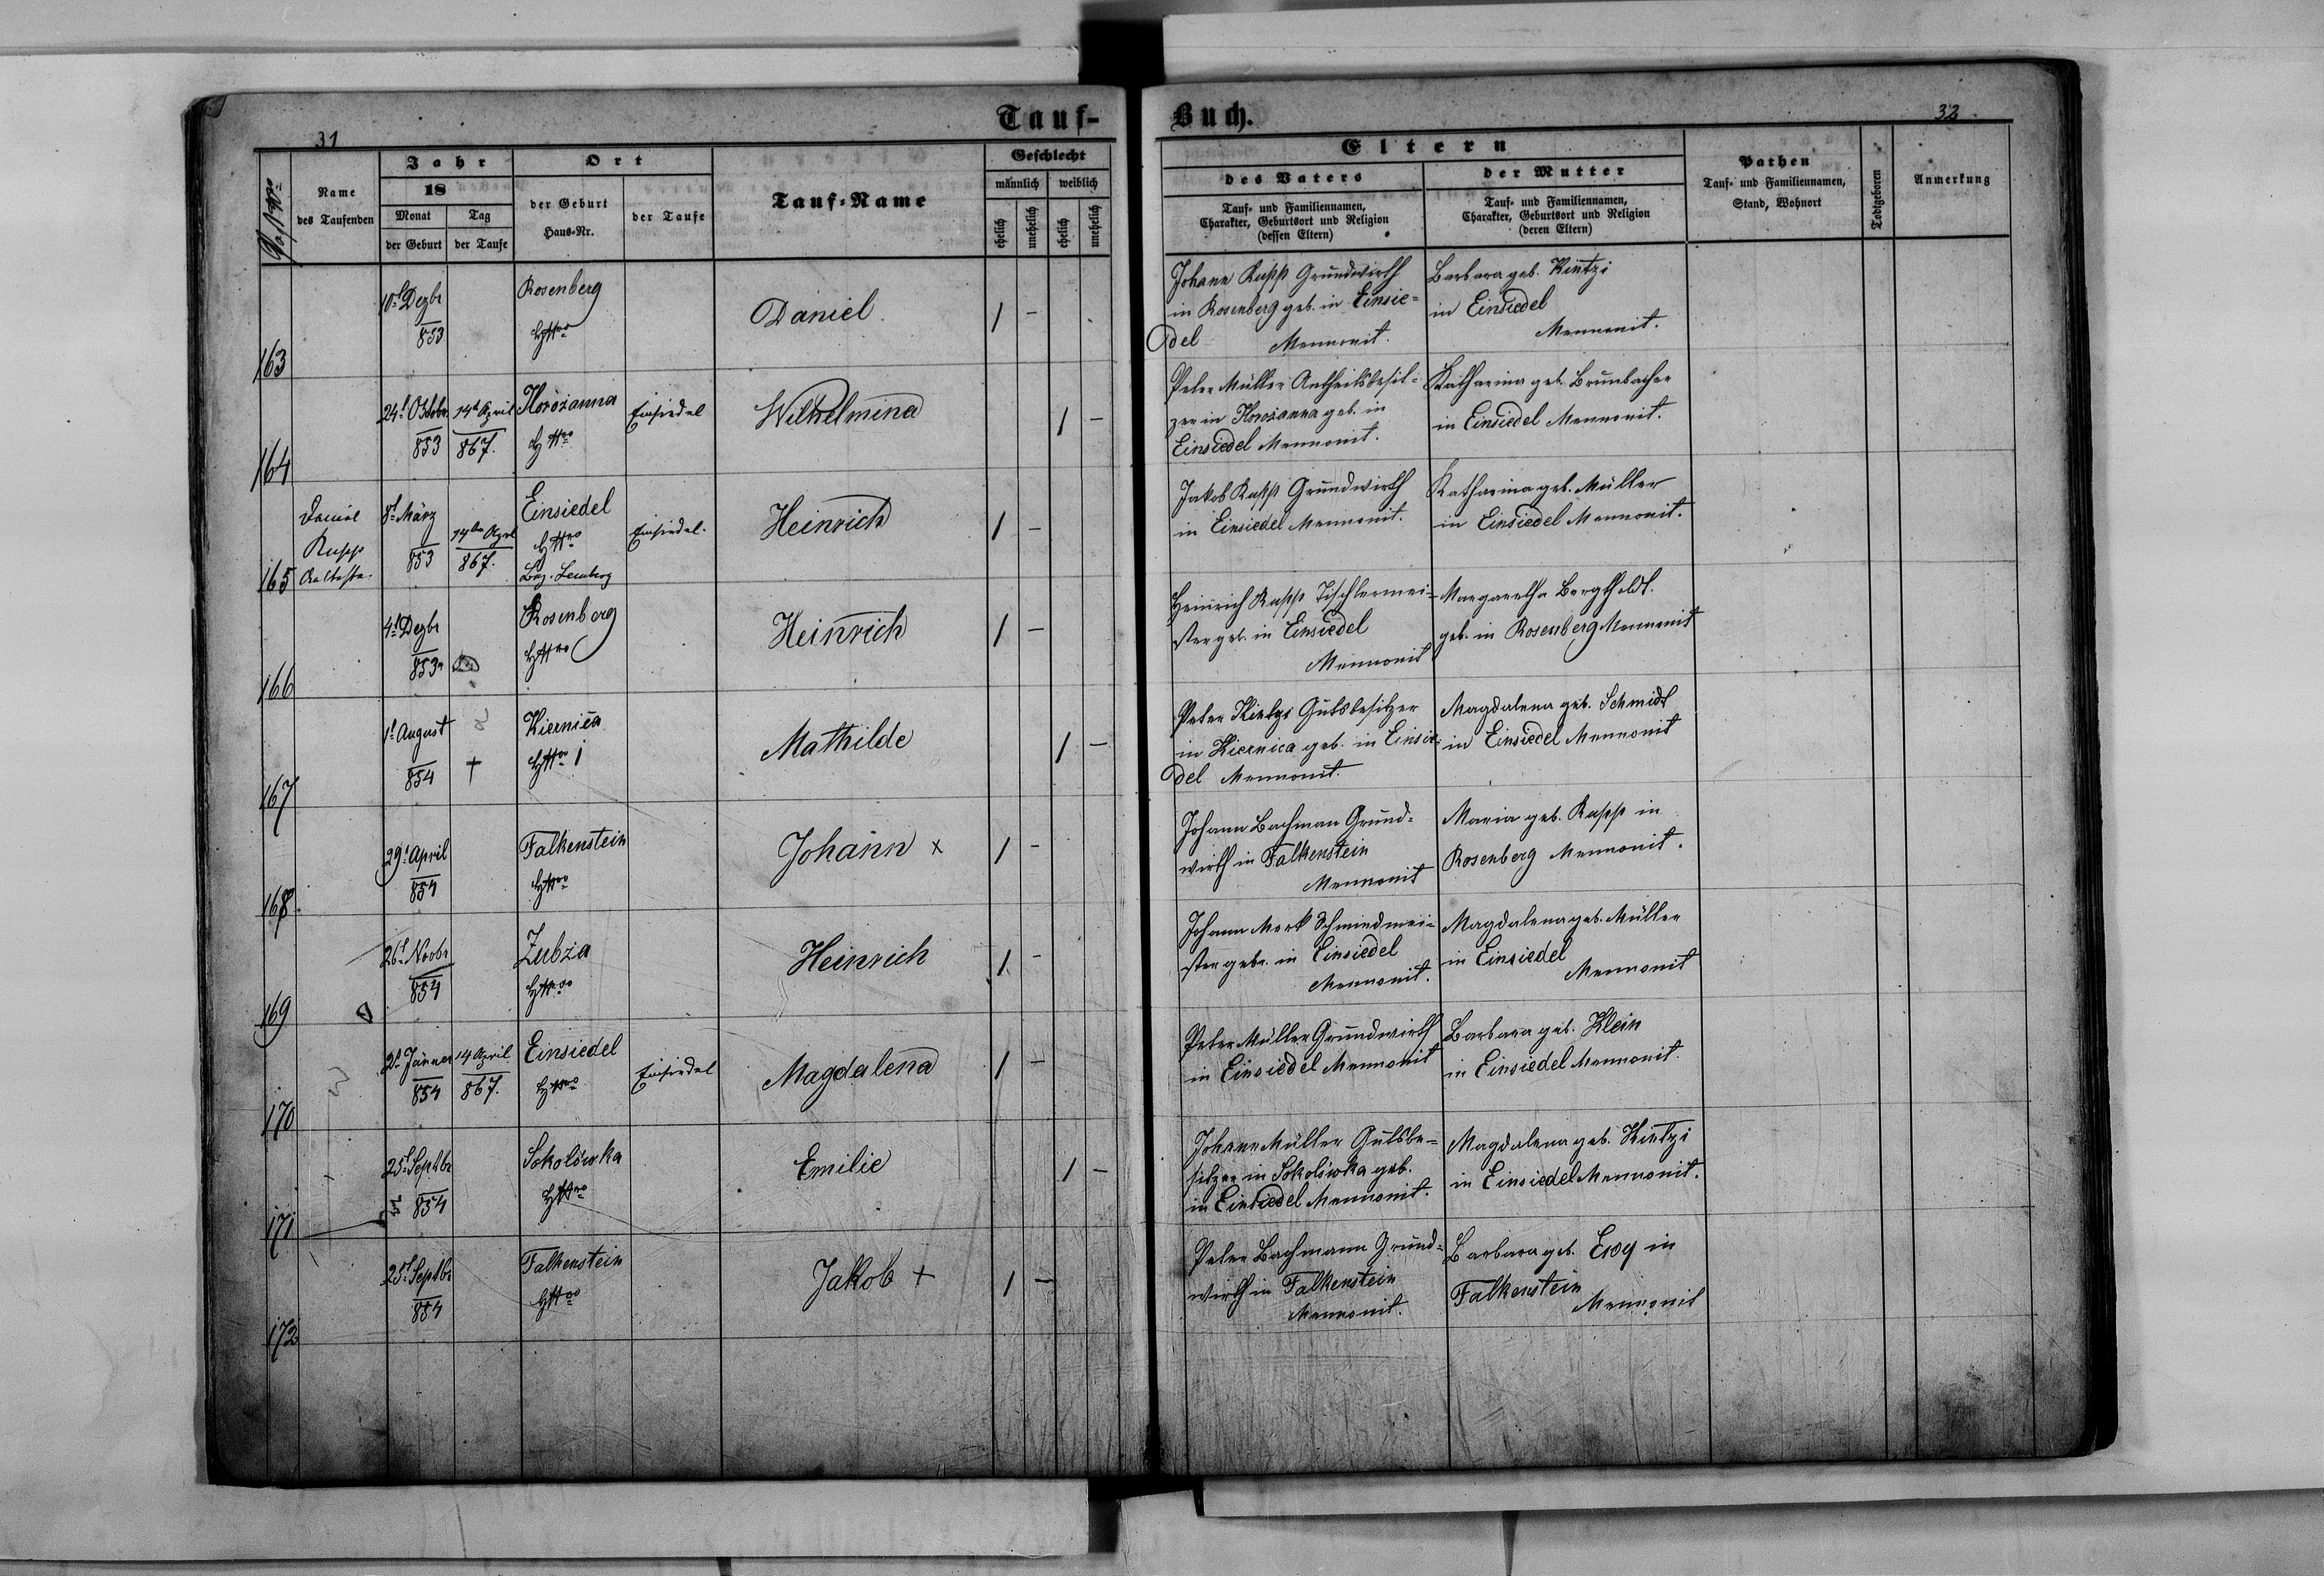 Tauf-
Buch.
31
32
Post Nro
Name
des Taufenden
Jahr
18
Monat
der Geburt
Tag
der Taufe
Ort
der Geburt
Haus-Nr.
der Taufe
Tauf-Name
Geschlecht
männlich
weiblich
ehelich
unehelich
ehelich
unehelich
Eltern
des Vaters
Tauf- und Familiennamen,
Charakter, Geburtsort und Religion
(dessen Eltern)
der Mutter
Tauf- und Familiennamen,
Charakter, Geburtsort und Religion
(deren Eltern)
Pathen
Tauf- und Familiennamen,
Stand, Wohnort
Todtgeboren
Anmerkung
163
10t Dezbr
853
Rosenberg
HNro
Daniel
1 -
Johann Rupp Grundwirth
in Rosenberg geb. in Einsie=
del Mennonit.
Barbara geb. Kintzi
in Einsiedel
Mennonit.
164
24t Octobr
853
14t April
867.
Horożanna
HNro
Einsiedel
Wilhelmina
1 -
Peter Müller Antheilsbesit=
zer in Horożanna geb. in
Einsiedel Mennonit.
Katharina geb. Brubacher
in Einsiedel Mennonit.
165
Daniel
Rupp
Aelteste.
8t März
853
14ten April
867.
Einsiedel
HNro
Bez. Lemberg
Einsiedel.
Heinrich
1 -
Jakob Rupp Grundwirth
in Einsiedel Mennonit.
Katharina geb. Müller
in Einsiedel Mennonit.
166
4t Dezbr
853
Rosenberg
HNro
Heinrich
1 -
Heinrich Rupp Tischlermei=
ster geb. in Einsiedel
Mennonit
Margaretha Bergtholdt.
geb. in Rosenberg Mennonit
167
1t August
854
†
Kiernica
HNro 1
Mathilde
1 -
Peter Kintzi Gutsbesitzer
in Kiernica geb. in Einsie=
del Mennonit.
Magdalena geb. Schmidt
in Einsiedel Mennonit
168
29t April
854
Falkenstein
HNro
Johann x
1 -
Johann Bachman Grund=
wirth in Falkenstein
Mennonit
Maria geb. Rupp in
Rosenberg Mennonit.
169
26t Novbr
854
Zubza
HNro
Heinrich
1 -
Johann Merk Schmiedmei=
ster gebr. in Einsiedel
Mennonit.
Magdalena geb. Müller
in Einsiedel
Mennonit
170
2t Jänner
854
14 April
867.
Einsiedel
HNro
Einsiedel
Magdalena
1 -
Peter Müller Grundwirth
in Einsiedel Mennonit
Barbara geb. Klein
in Einsiedel Mennonit.
171
25t Septbr
854
Sokolówka
HNro
Emilie
1 -
Johann Müller Gutsbe=
sitzer in Sokolówka geb.
in Einsiedel Mennonit.
Magdalena geb. Kintzi
in Einsiedel Mennonit.
172
25t Septbr
854
Falkenstein
HNro
Jakob +
1 -
Peter Bachmann Grund=
wirth in Falkenstein
Mennonit.
Barbara geb. Ewy in
Falkenstein
Mennonit